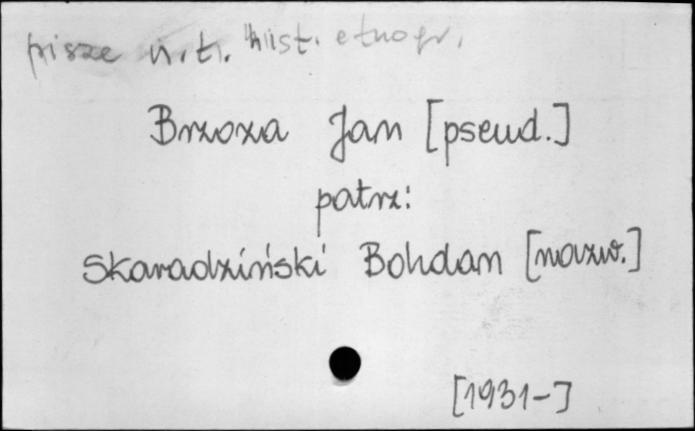 pisze n.t. hist. etnogr.
Brzoza Jan [pseud.]
patrz:
Skaradziński Bohdan [nazw.]
[1931-]